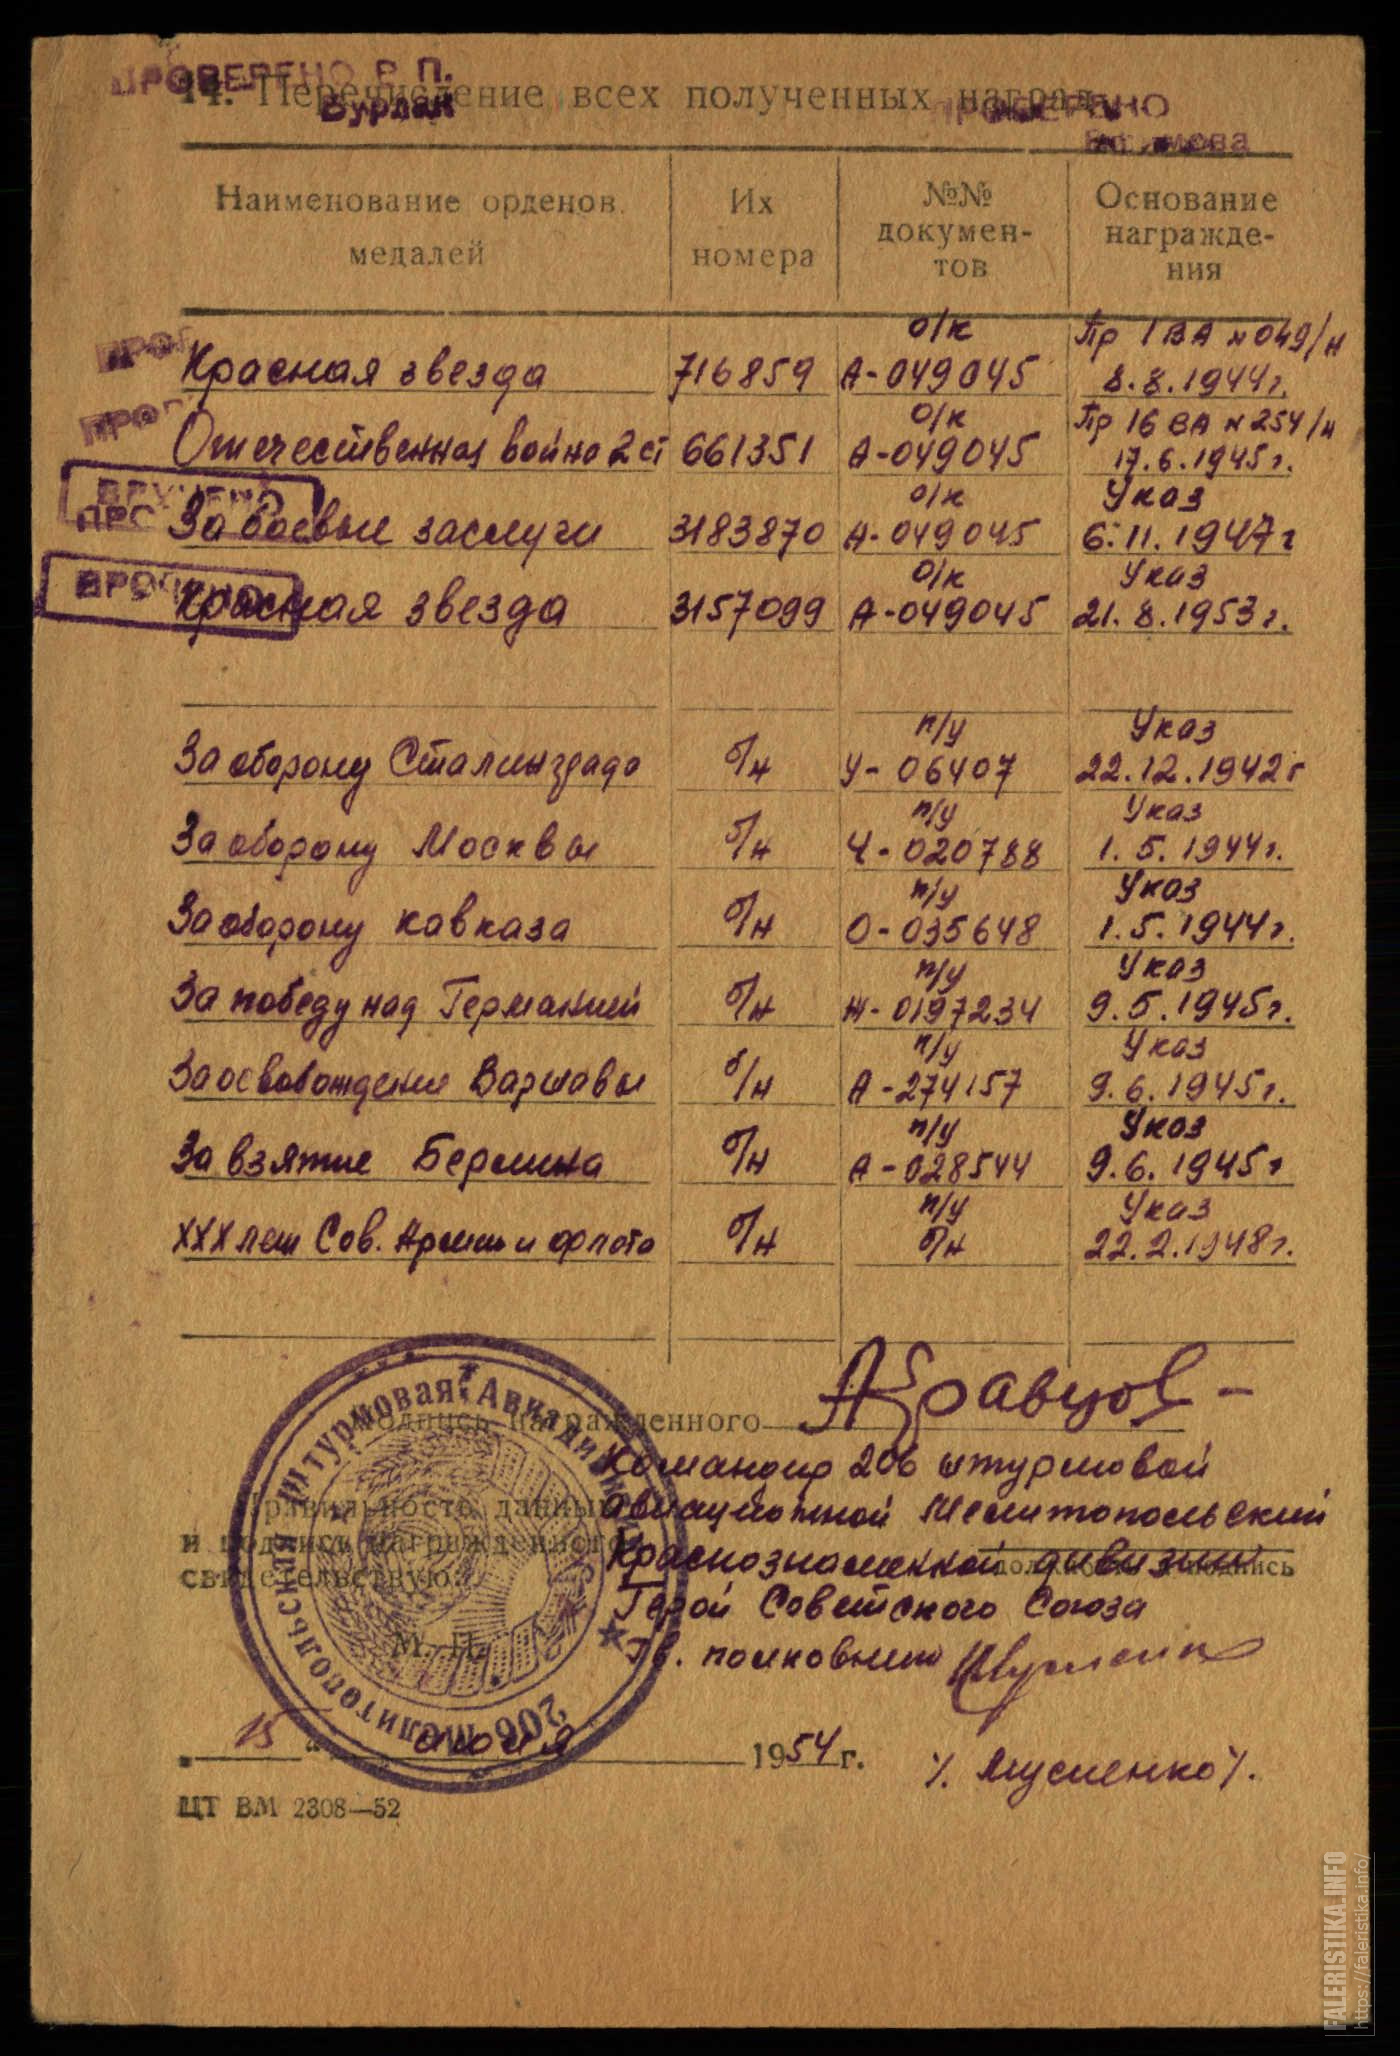 ПРОВЕРЕНО Р. П.
Бурдак
14. Перечисление всех полученных наград
ПРОВЕРЕНО
Наименование орденов медалей | Их номера | №№ документов | Основание награждения
о/к Пр 1 ВА №049/н
Красная звезда 716859 А-049045 8.8.1944г.
о/к Пр 16 ВА №254/н
Отечественная война 2 ст 661351 А-049045 17.6.1945г.
ВРУЧЕНО
о/к Указ
За боевые заслуги 3183870 А-049045 6.11.1947г
о/к Указ
Красная звезда 3157099 А-049045 21.8.1953г.
п/у Указ
За оборону Сталинграда б/н У-06407 22.12.1942г
п/у Указ
За оборону Москвы б/н Ч-020788 1.5.1944г.
п/у Указ
За оборону Кавказа б/н О-035648 1.5.1944г.
п/у Указ
За победу над Германией б/н Ж-0197234 9.5.1945г.
п/у Указ
За освобождение Варшавы б/н А-274157 9.6.1945г.
п/у Указ
За взятие Берлина б/н А-028544 9.6.1945г
п/у Указ
ХХХ лет Сов. Армии и флота б/н б/н 22.2.1948г.
Подпись награжденного
Командир 206 штурмовой
авиационной Мелитопольской
Правильность данных
и подпись награжденного
свидетельствую:
Краснознаменной дивизии
должность и подпись
Герой Советского Союза
М. П.
Гв. полковник
206 Мелитопольская Штурмовая Авиадивизия
15 июня 1954 г.
/. Мусиенко /.
ЦТ ВМ 2308—52
FALERISTIKA.INFO
https://faleristika.info/